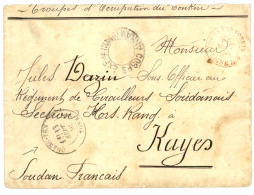 Groupes d'Occupation du Tonkin
Monsieur
Jules Bazin Sous Officier au
Régiment de Tirailleurs Soudanais
Section Hors Rang, à
Kayes
Soudan Français